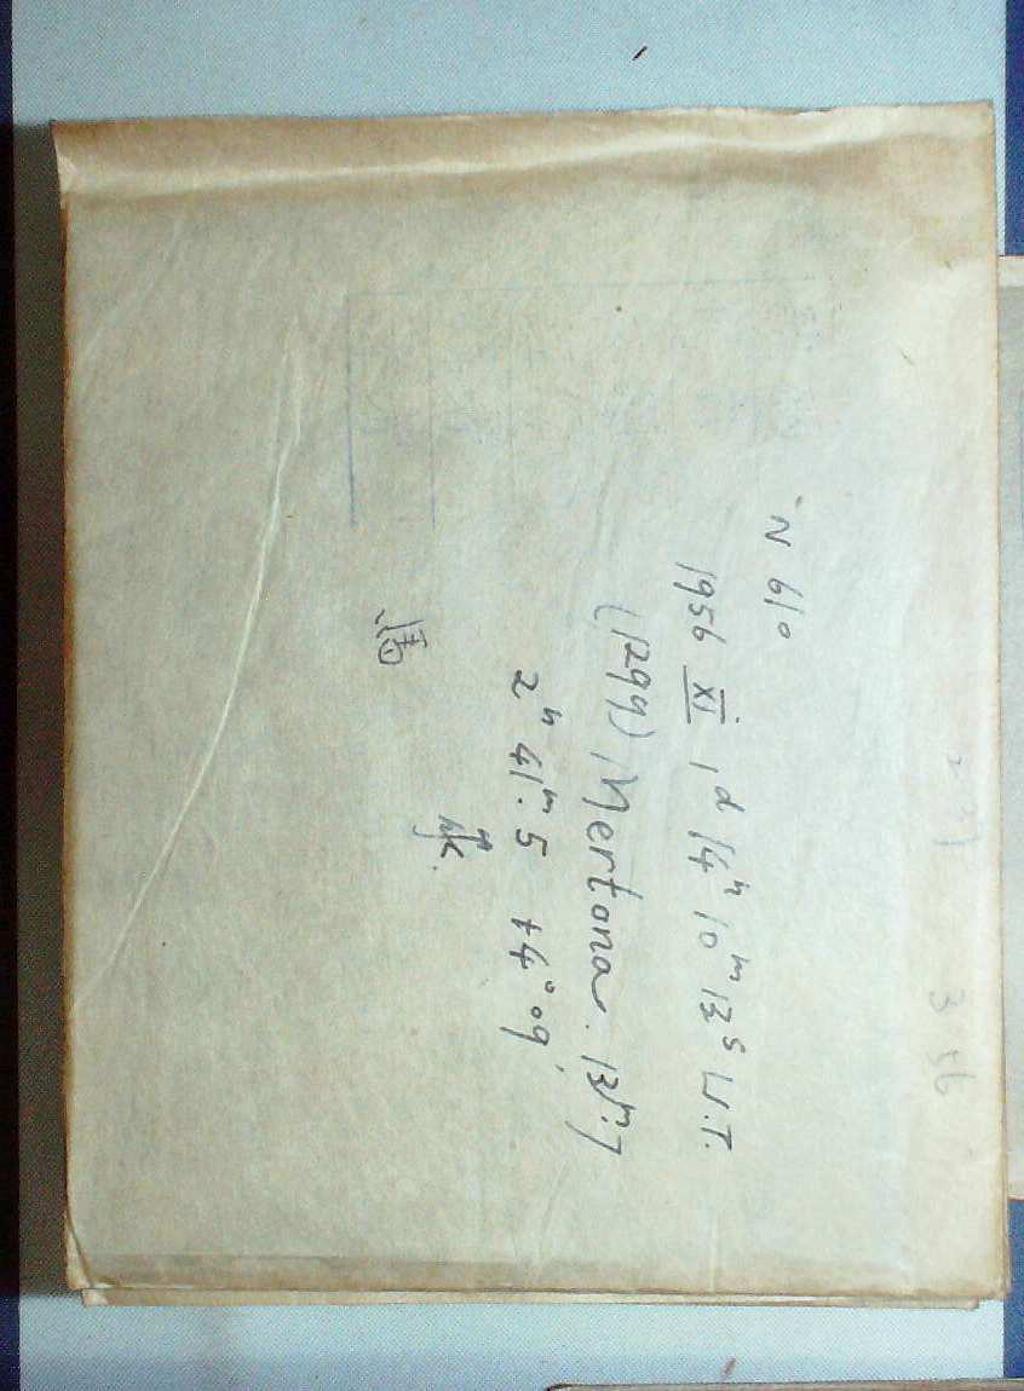 N 610
1956 XI 1ᵈ 14ʰ 10ᵐ 13ˢ U.T.
(1299) Mertona. 13ᵐ.7
2ʰ 41ᵐ.5 +4° 09'
馬